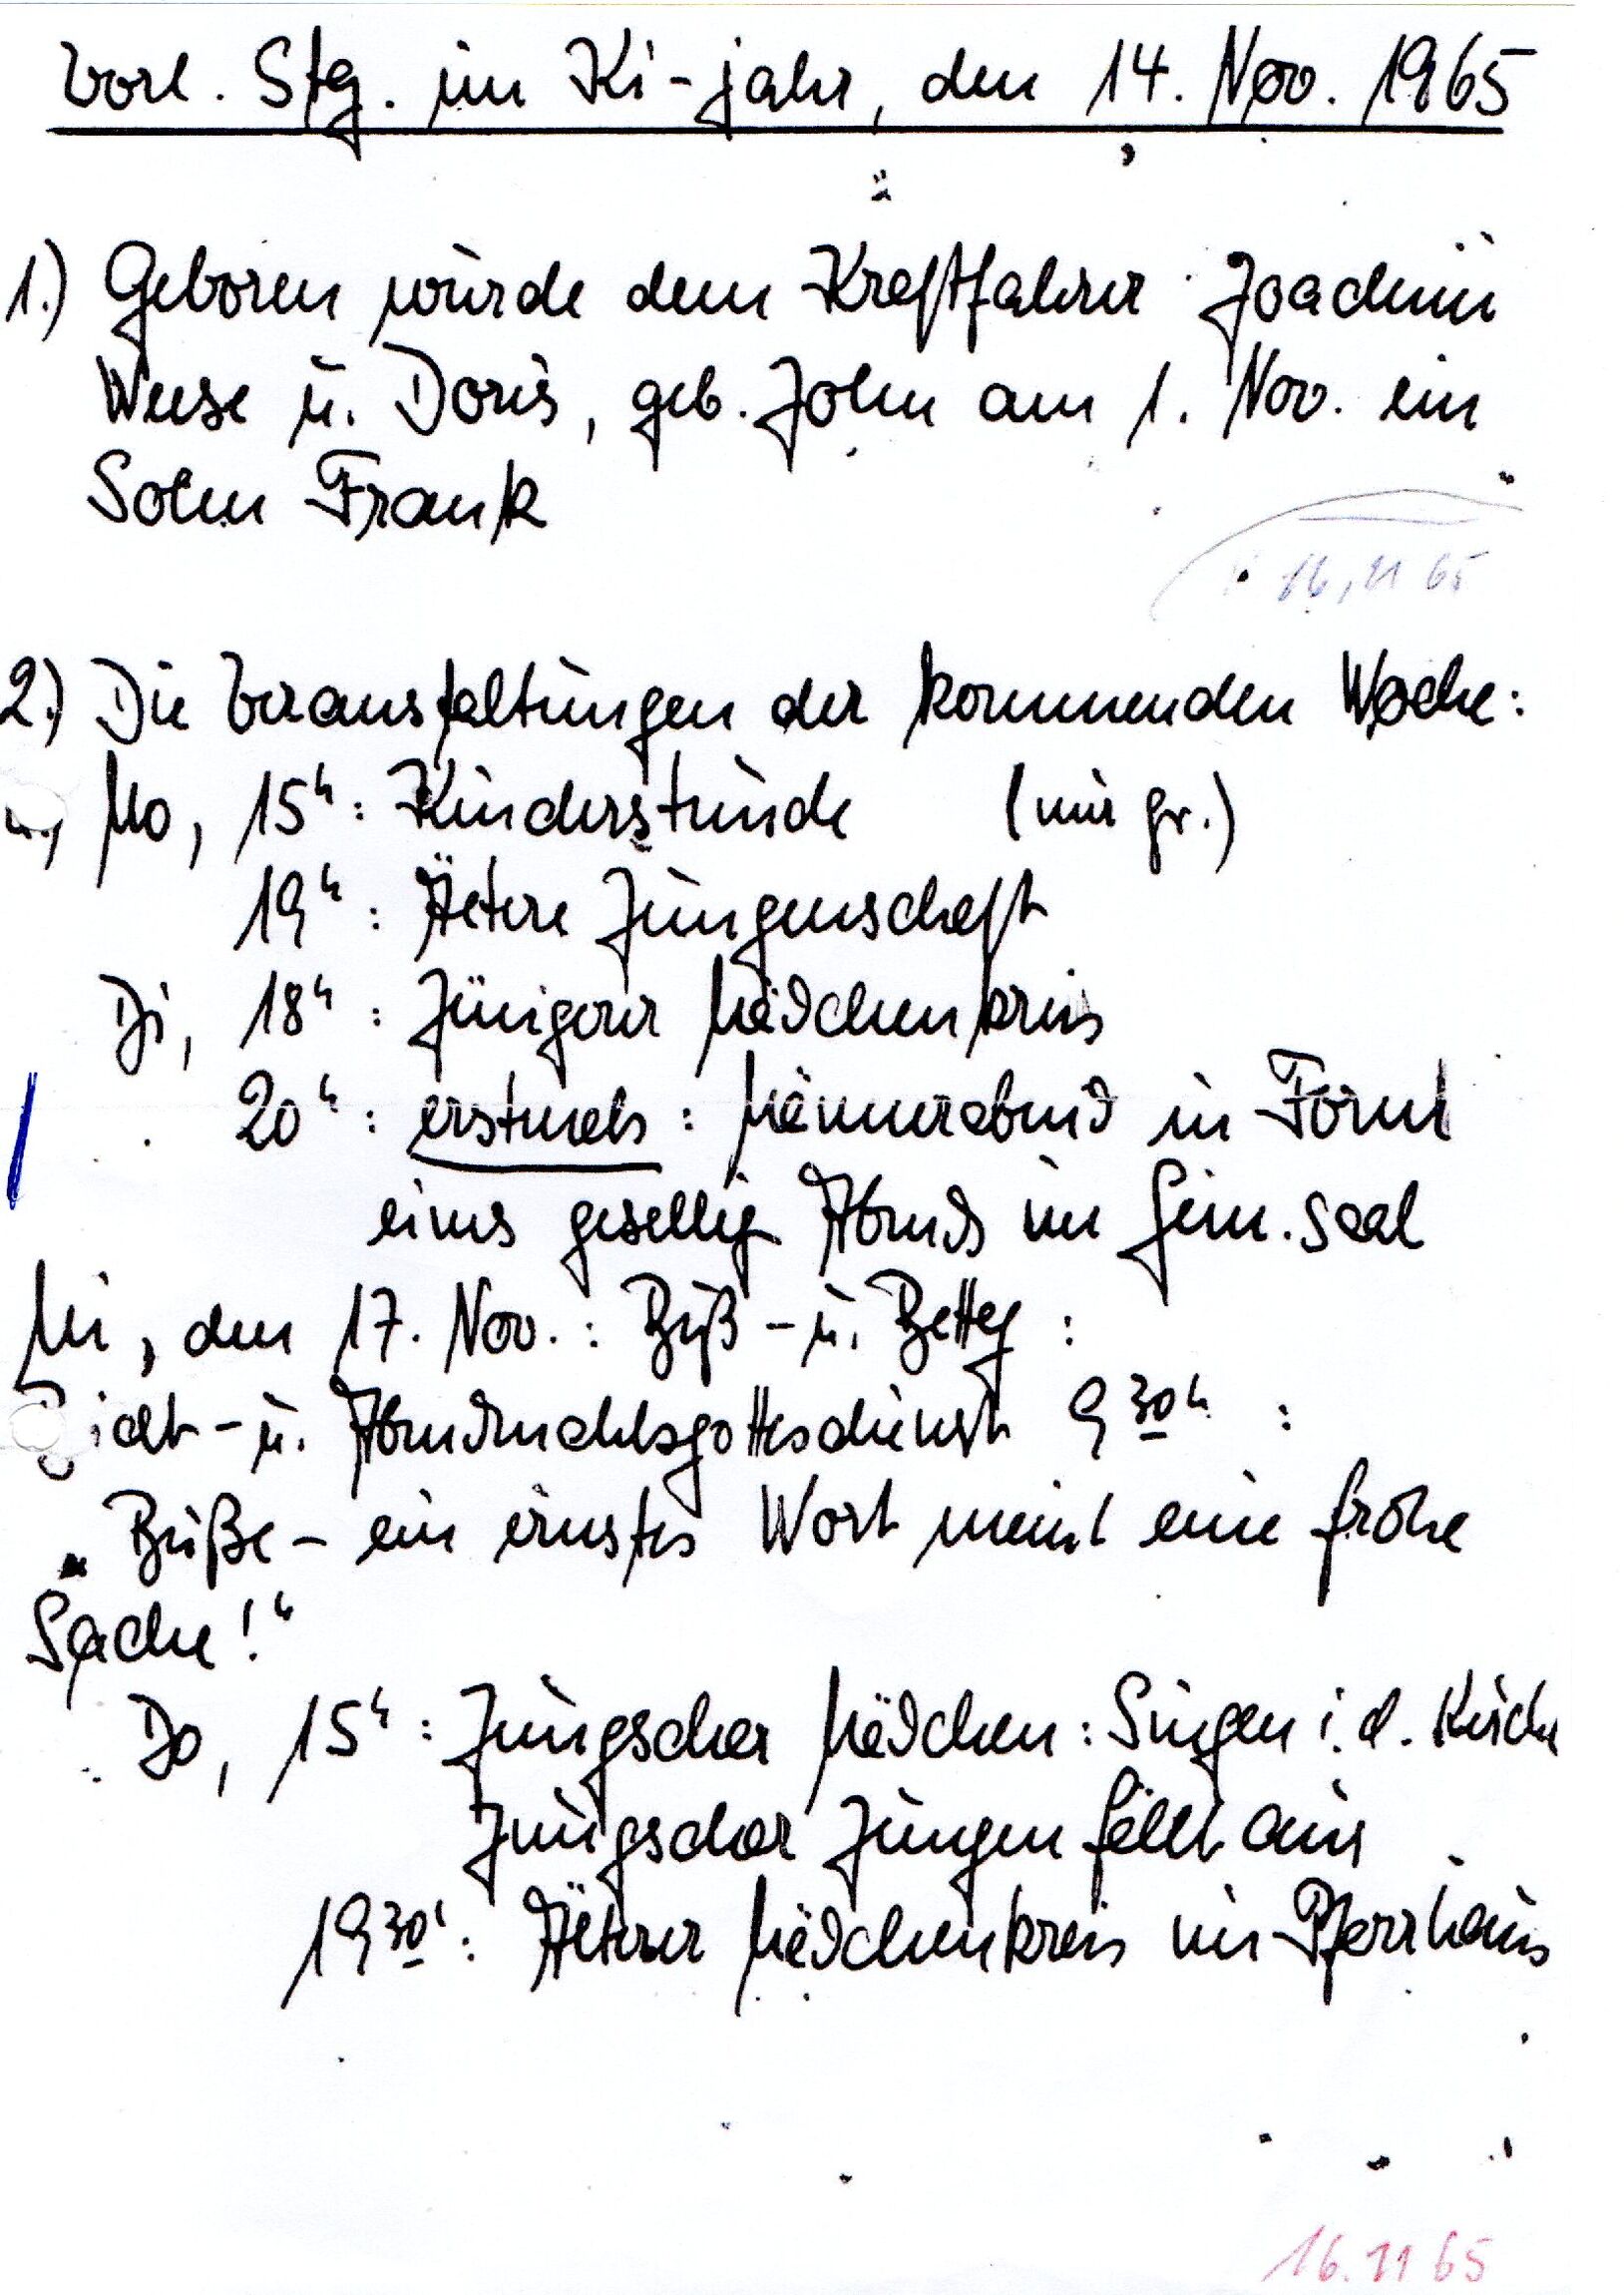 Vorl. Stg. im Ki-jahr, den 14. Nov. 1965
1.) Geboren wurde dem Kraftfahrer Joachim
Weese u. Doris, geb. John am 1. Nov. ein
Sohn Frank
16, 11 65
2.) Die Veranstaltungen der kommenden Woche:
Mo, 15h: Kinderstunde (nur gr.)
19h: Ältere Jungenschaft
Di, 18h: Jüngerer Mädchenkreis
20h: erstmals: Männerabend in Form
eines gesellig Abends im Gem. saal
Mi, den 17. Nov.: Buß- u. Bettag:
Beicht- u. Abendmahlsgottesdienst 9 30 h:
"Buße – ein ernstes Wort meint eine frohe
Sache!"
Do, 15h: Jungschar Mädchen: Singen i. d. Kirche
Jungschar Jungen fällt aus
19 30': Älterer Mädchenkreis im Pfarrhaus
16.11 65